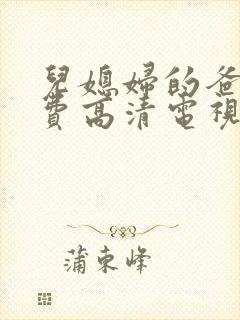 兒媳婦的爸
費高清電視
蒲東峰